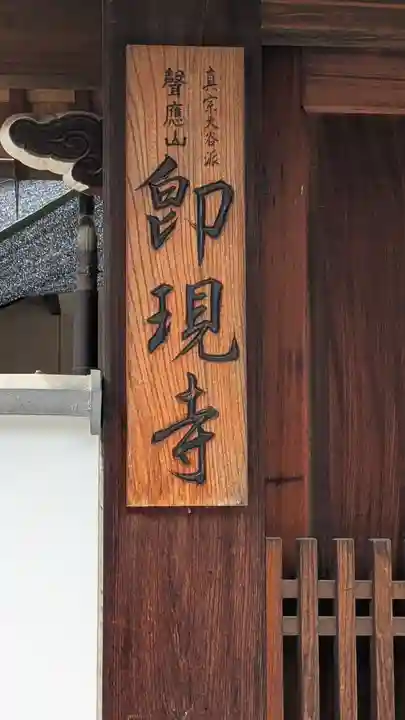 真宗大谷派
聲應山
即現寺